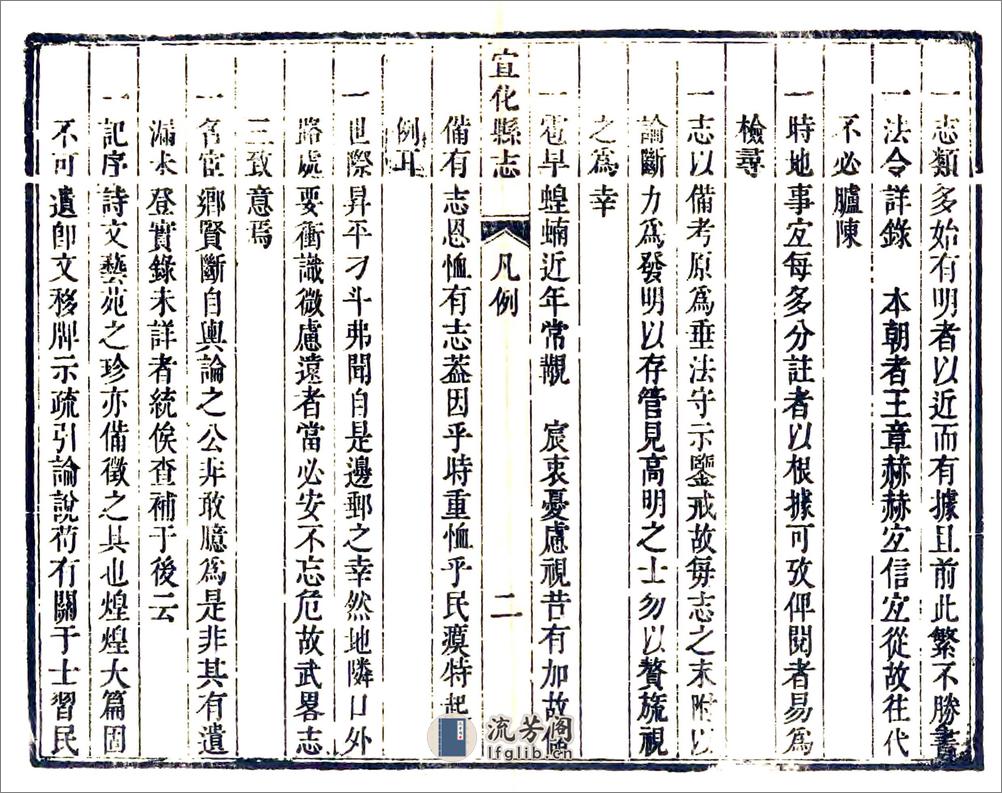 一志類多始有明者以近而有據且前此繁不勝書
一法令詳錄　本朝者王章赫赫宐信宐從故往代
不必臚陳
一時地事宐每多分註者以根據可攷俾閱者易為
檢尋
一志以備考原為垂法守示鑒戒故每志之末附以
論斷力為發明以存管見高明之士勿以贅旒視
之為幸
一雹旱蝗蝻近年常覯　宸衷憂慮視昔有加故
備有志恩恤有志葢因乎時重恤乎民瘼特起
例耳
一世際昇平刁斗弗聞自是邊郵之幸然地隣口外
路處要衝識微慮遠者當必安不忘危故武畧志
三致意焉
一名宦鄉賢斷自輿論之公非敢臆為是非其有遺
漏未登實錄未詳者統俟查補于後云
一記序詩文藝苑之珍亦備徵之具也煌煌大篇固
不可遺卽文移牌示疏引論說苟有關于士習民
宣化縣志
凡例
二
流芳阁
lfglib.cn